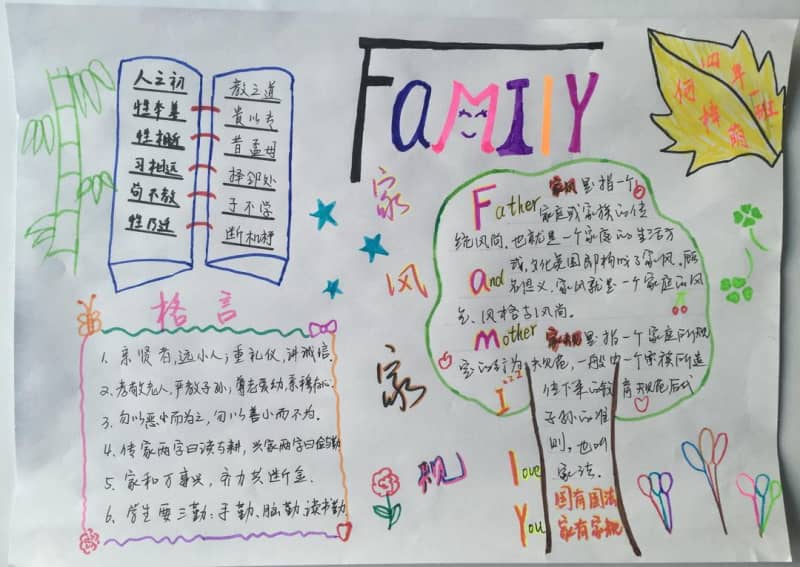 FAMIlY
四年一班
人之初
性本善
性相近
习相远
苟不教
性乃迁
教之道
贵以专
昔孟母
择邻处
子不学
断机杼
家风家规
格言
1. 亲贤者,远小人;重礼仪,讲诚信.
2. 孝敬老人,严教子孙;尊老爱幼,亲穆
3. 勿以恶小而为之,勿以善小而不为.
4. 传家两字曰读与耕,兴家两字曰俭与勤
5. 家和万事兴,齐力共断金.
6. 学生要三勤:手勤、脑勤、读书勤
Father 家风是指一个
家庭或家族的传
统风尚,也就是一个家庭的生活方
and 式,文化氛围即构成了家风.顾
名思义,家风就是一个家庭的风
气、风格与风尚.
mother 家规是指一个家庭的规
定的行为规范,一般由一个家族的遗
传下来的教育规范后代
子孙的准
则,也叫
家法.
I
love
You
国有国法
家有家规